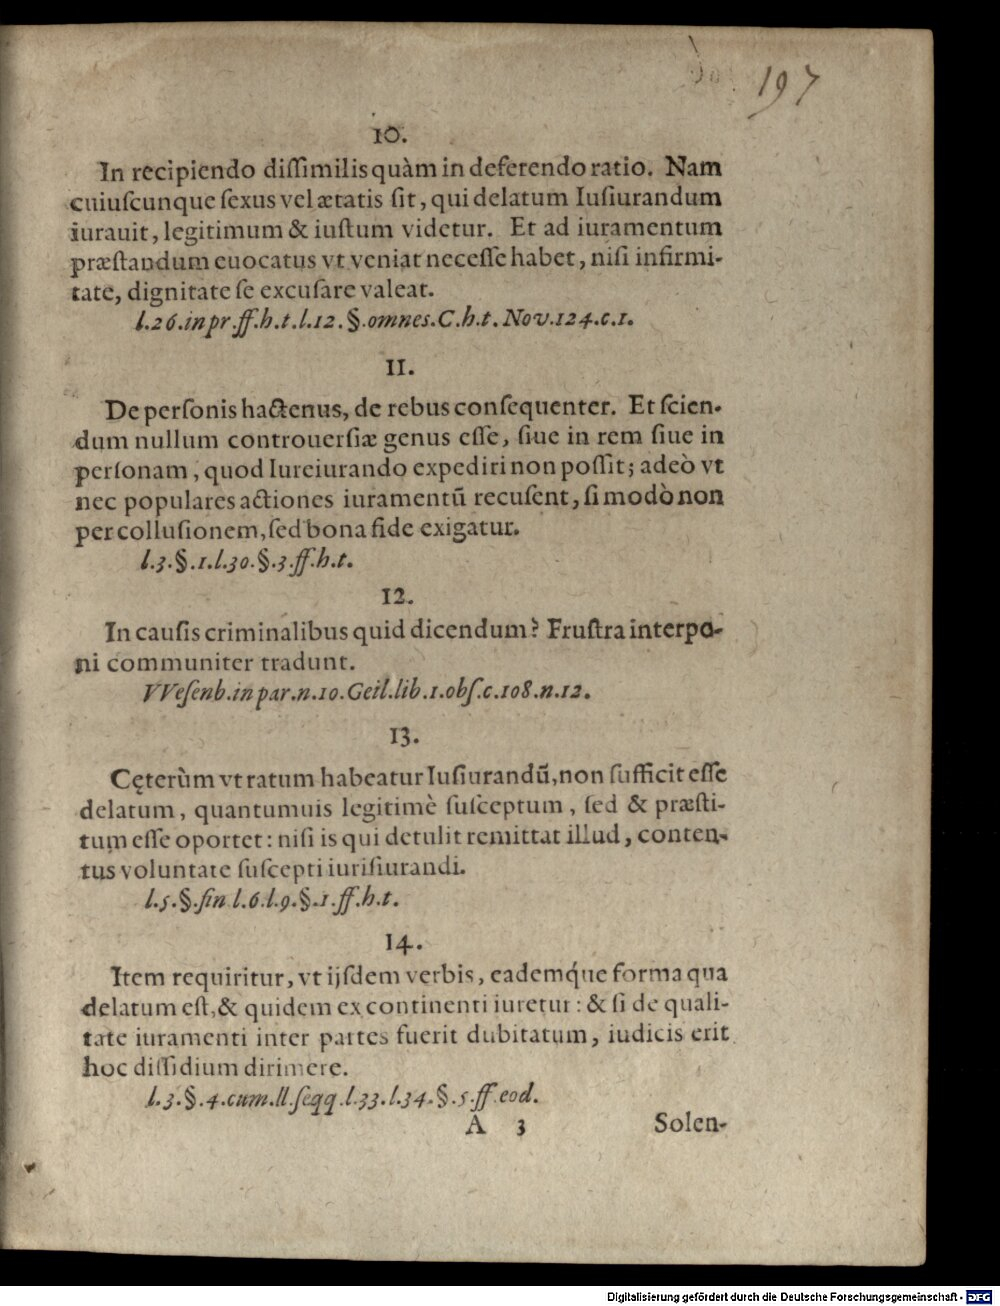 197
10.
In recipiendo diſſimilis quàm in deferendo ratio. Nam
cuiuſcunque ſexus vel ætatis ſit, qui delatum Iuſiurandum
iurauit, legitimum & iuſtum videtur. Et ad iuramentum
præſtandum euocatus vt veniat neceſſe habet, niſi infirmi-
tate, dignitate ſe excuſare valeat.
l.26.in pr.ff.h.t.l.12.§.omnes.C.h.t.Nov.124.c.1.
11.
De perſonis hactenus, de rebus conſequenter. Et ſcien-
dum nullum controuerſiæ genus eſſe, ſiue in rem ſiue in
perſonam, quod Iureiurando expediri non poſſit; adeò vt
nec populares actiones iuramentũ recuſent, ſi modò non
per colluſionem, ſed bona fide exigatur.
l.3.§.1.l.30.§.3.ff.h.t.
12.
In cauſis criminalibus quid dicendum? Fruſtra interpo-
ni communiter tradunt.
VVeſenb.in par.n.10.Geil.lib.1.obſ.c.108.n.12.
13.
Cęterùm vt ratum habeatur Iuſiurandũ, non ſufficit eſſe
delatum, quantumuis legitimè ſuſceptum, ſed & præſti-
tum eſſe oportet: niſi is qui detulit remittat illud, conten-
tus voluntate ſuſcepti iuriſiurandi.
l.5.§.fin l.6.l.9.§.1.ff.h.t.
14.
Item requiritur, vt ijſdem verbis, eademq́ue forma qua
delatum eſt, & quidem ex continenti iuretur: & ſi de quali-
tate iuramenti inter partes fuerit dubitatum, iudicis erit
hoc diſſidium dirimere.
l.3.§.4.cum.ll.ſeqq.l.33.l.34.§.5.ff.eod.
A 3 Solen-
Digitalisierung gefördert durch die Deutsche Forschungsgemeinschaft - DFG